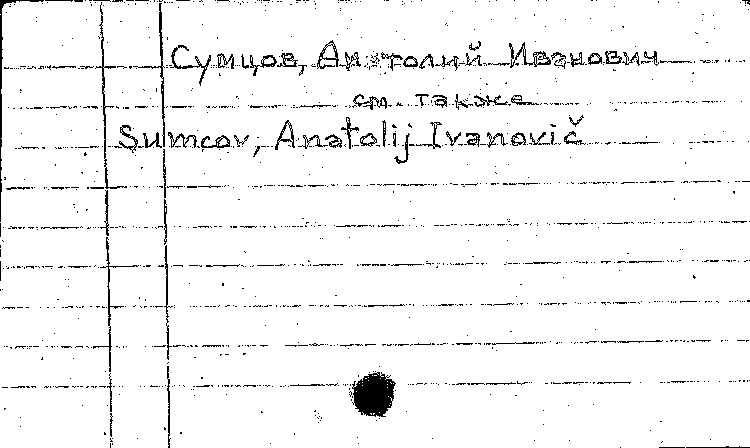 Сумцов, Анатолий Иванович
см. также
Sumcov, Anatolij Ivanovič